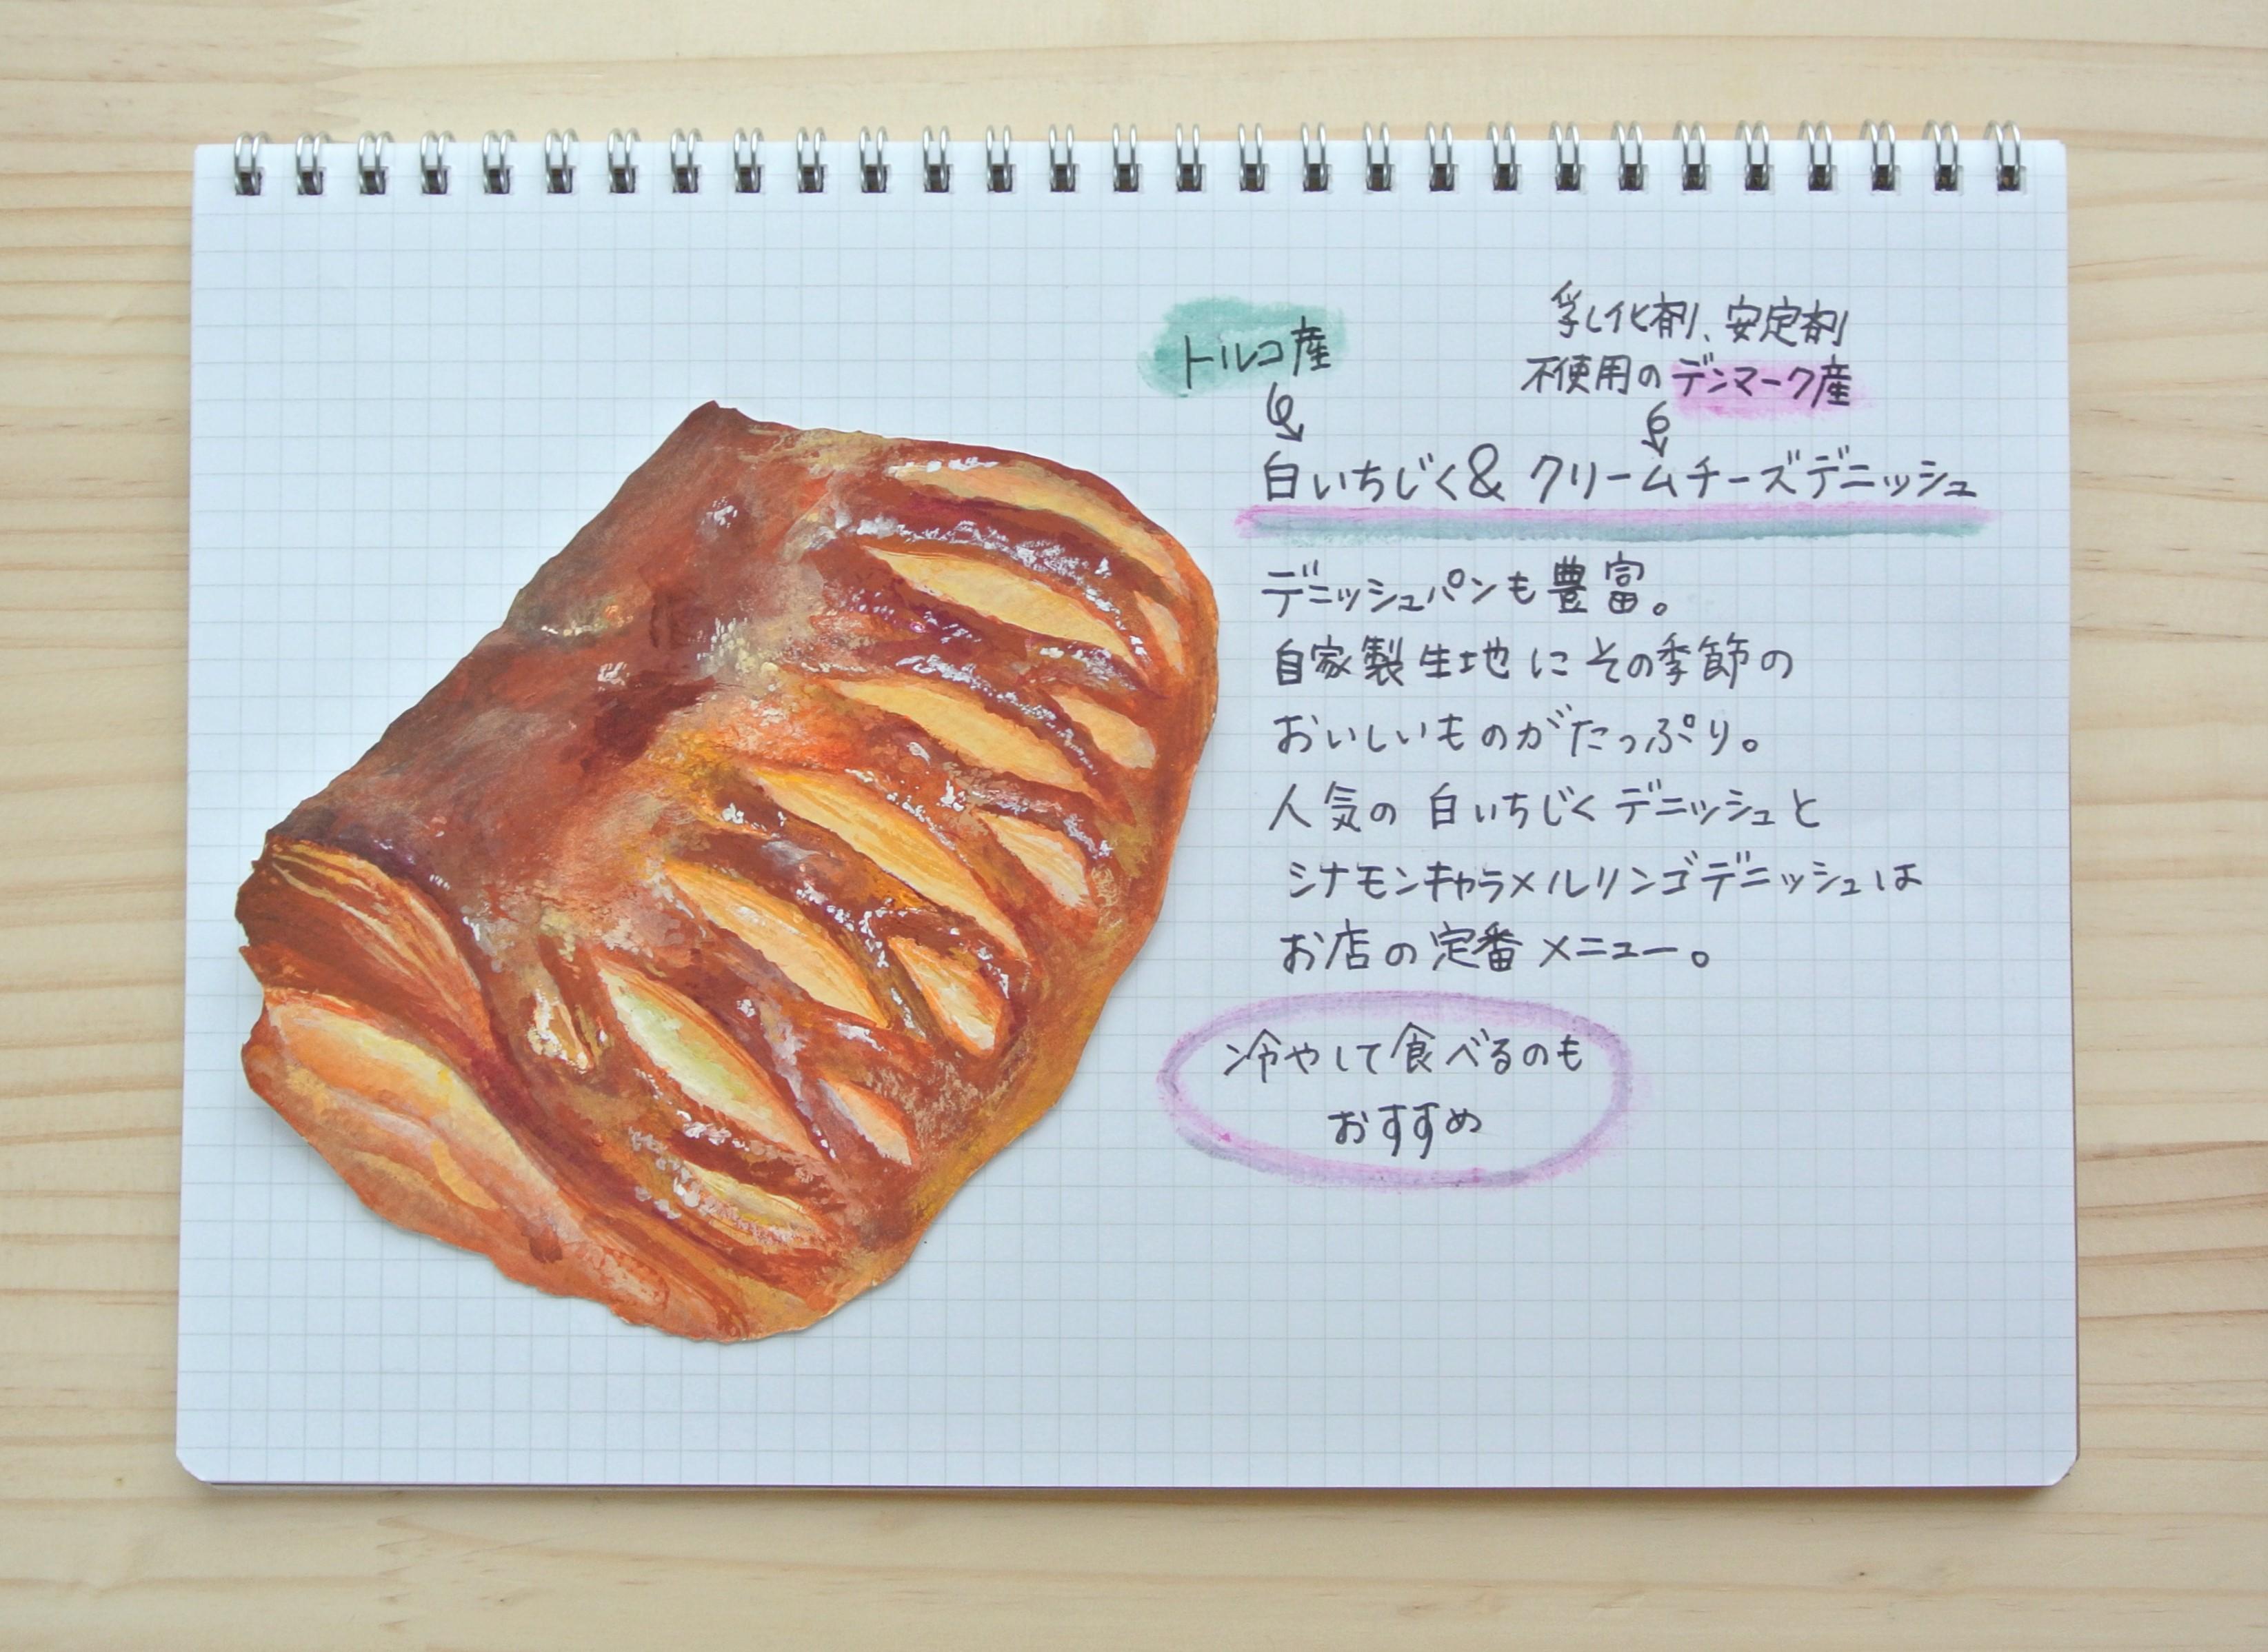 トルコ産
乳化剤、安定剤
不使用のデンマーク産
白いちじく& クリームチーズデニッシュ
デニッシュパンも豊富。
自家製生地にその季節の
おいしいものがたっぷり。
人気の白いちじくデニッシュと
シナモンキャラメルリンゴデニッシュは
お店の定番メニュー。
冷やして食べるのも
おすすめ